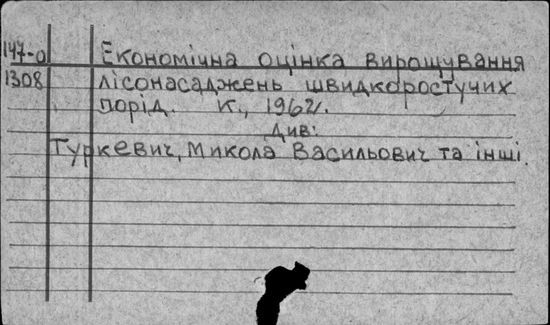 147-о Економічна оцінка вирощування
1308 лісонасаджень швидкоростучих
порід. К., 1962.
Див:
Туркевич, Микола Васильович та інші.